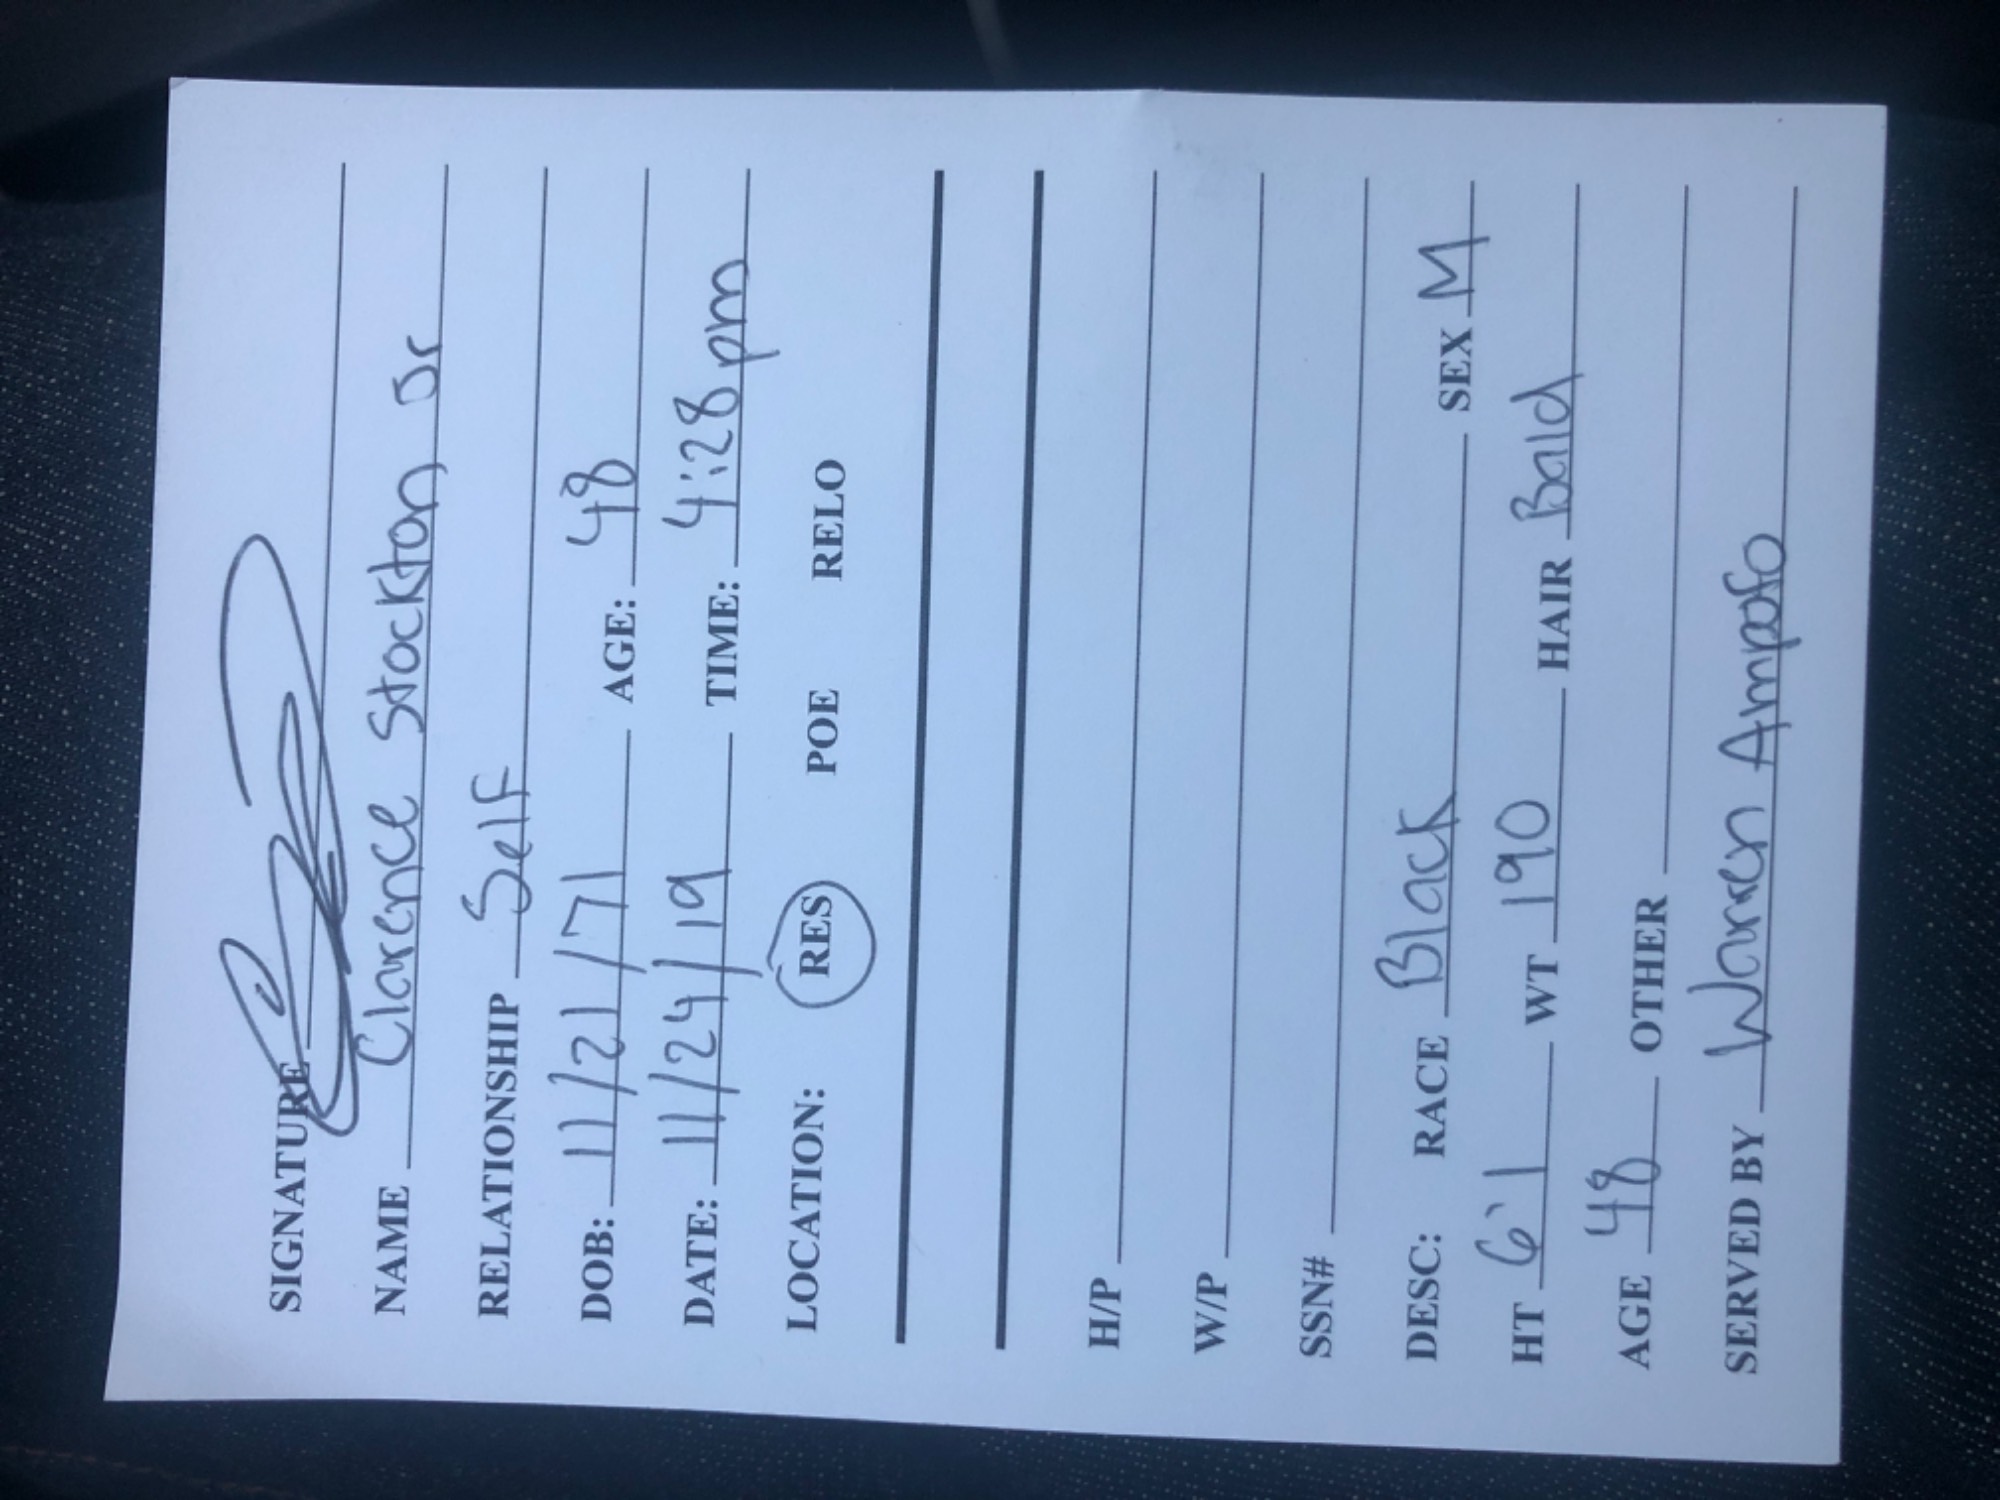 SIGNATURE
NAME Clarence Stockton Jr
RELATIONSHIP Self
DOB: 11/21/71 AGE: 48
DATE: 11/24/19 TIME: 4:28pm
LOCATION: RES POE RELO
H/P
W/P
SSN#
DESC: RACE Black SEX M
HT 6'1 WT 190 HAIR Bald
AGE 48 OTHER
SERVED BY Warren Ampofo